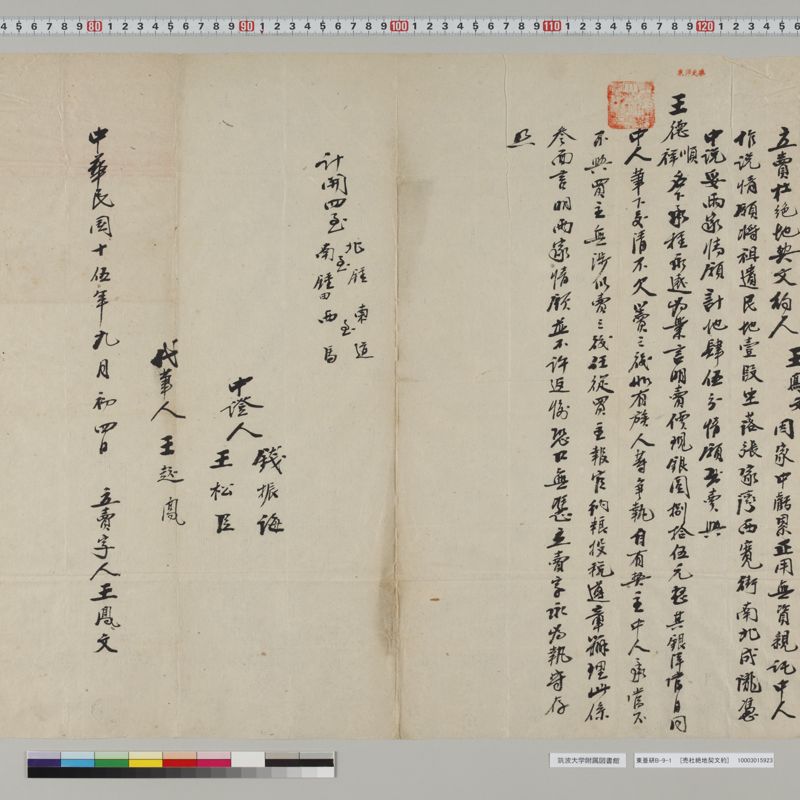 立賣杜絕地契文約人王鳳文因家中虧累正用無資親託中人
作說情願將祖遺民地壹段坐落張家灣西寬街南北成隴憑
中說妥兩家情願計地肆伍分情願出賣與
王德順祥名下承種永遠為業言明賣價現銀圓捌拾伍元整其銀洋當日同
中人筆下交清不欠賣之後如有族人等爭執自有契主中人承當不
不與買主無涉似賣之後任從買主報官納粮投稅遵章辦理此係
叁面言明兩家情願並不許返悔恐口無憑立賣字永為執守存
照
計開四至
北至鍾
南至鍾田
東至道
西至馮
中證人
錢振海
王松臣
代筆人 王起鳳
中華民國十伍年九月初四日 立賣字人王鳳文
80 90 100 110 120
筑波大学附属図書館
東亜研B-9-1 [売杜絶地契文約] 10003015923